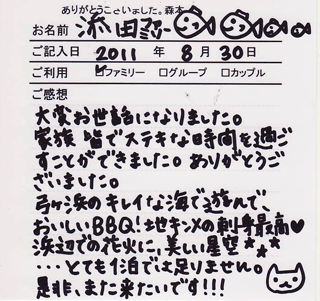 ありがとうございました。森本
お名前 添田
ご記入日 2011 年 8 月 30 日
ご利用 ☑ファミリー □グループ □カップル
ご感想
大変お世話になりました。
家族皆でステキな時間を過ご
すことができました。ありがとうご
ざいました。
弓ヶ浜のキレイな海で遊んで、
おいしいBBQ!地キンメの刺身最高♥
浜辺での花火に、美しい星空★★★
...とても1泊では足りません。
是非、また来たいです!!!